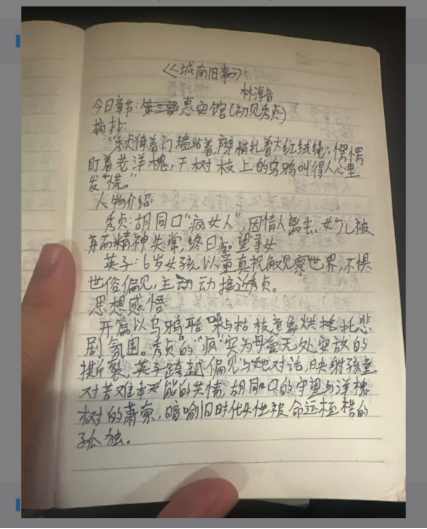 《城南旧事》
林海音
今日章节:惠安馆(初见秀贞)
摘抄:
"秀贞倚着门墙站着,辫梢扎着大红绒绳,愣愣
盯着老洋槐,干树枝上的乌鸦叫得人心里
发慌。"
人物介绍
秀贞:胡同口"疯女人",因情人离去、女儿被
弃而精神失常,终日盼望寻女
英子:6岁女孩,以童真视觉观察世界,不惧
世俗偏见,主动动接近秀贞。
思想感悟
开篇以乌鸦聒噪与枯枝意象烘托悲
剧氛围。秀贞的"疯"实为母爱无处安放的
撕裂,英子跨越偏见与她对话,映射孩童
对苦难本能的共情,胡同口的守望与洋槐
树的萧条,暗喻旧时代女性被命运桎梏的
孤独。